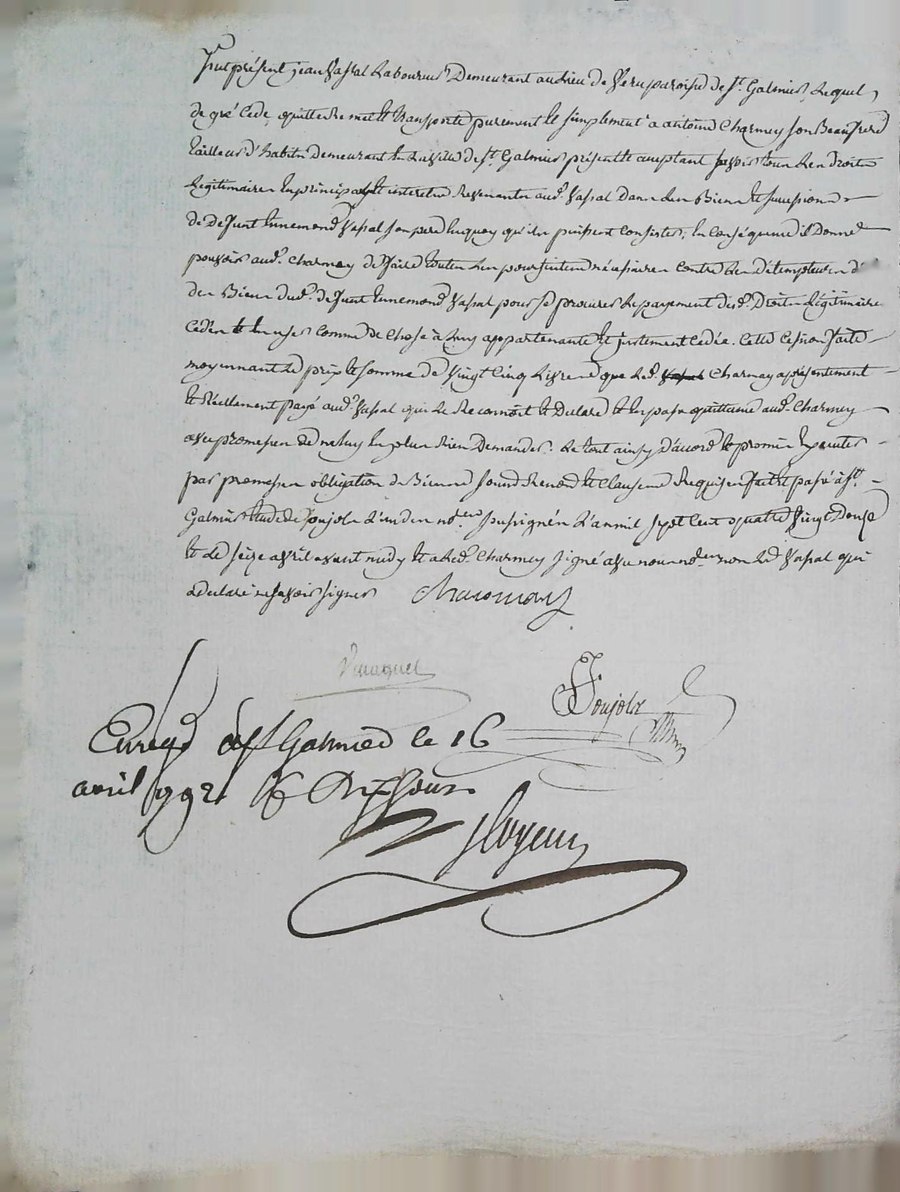 Fut présent jean Vassal Laboureur Demeurant au lieu de Veru paroisse de st. Galmier, Lequel
de gré cede, quitte remet et transporte purement et simplement a antoine Charmey son Beaufrere
tailleur d'habits Demeurant en la ville de st Galmier présent et aceptant savoir tous Les droits
Legitimaires en principal et interets Revenants aud. Vassal Dans les Biens et succession
de Defunt Ennemond Vassal son pere en quoy qu'ils puissent Consister, En Conséquence il Donne
pouvoir aud. Charmey de faire toutes Les poursuites nécéssaires contre Les détempteurs d
des Biens dud. defunt Ennemond Vassal pour se procurer Le payement desd. Droits Légitimaires
Cédés et en user comme de chose à Luy appartenante et justement cédée. Cette Cession faite
moyennant Le prix et somme de Vingt Cinq Livres que Led. Charmey a présentement
et Réellement payé aud. Vassal qui Le Reconnoit et Declare et en passe quittance aud. Charmey
avec promesses de ne luy en plus Rien Demander. Le tout ainsy d'accord et promis Executer
par promesses obligation de Biens et Clauses Requises fait et passé à st.
Galmier Etude de Poujols L'un des no.res soussignés L'an mil sept Cent quatre Vingt Douze
et Le seize avril avant midy et a Led. Charmey signé avec nous no.res non Led. Vassal qui
a declaré ne savoir signer Charmay
Poujols
Enregé à st Galmier le 16
avril 1792